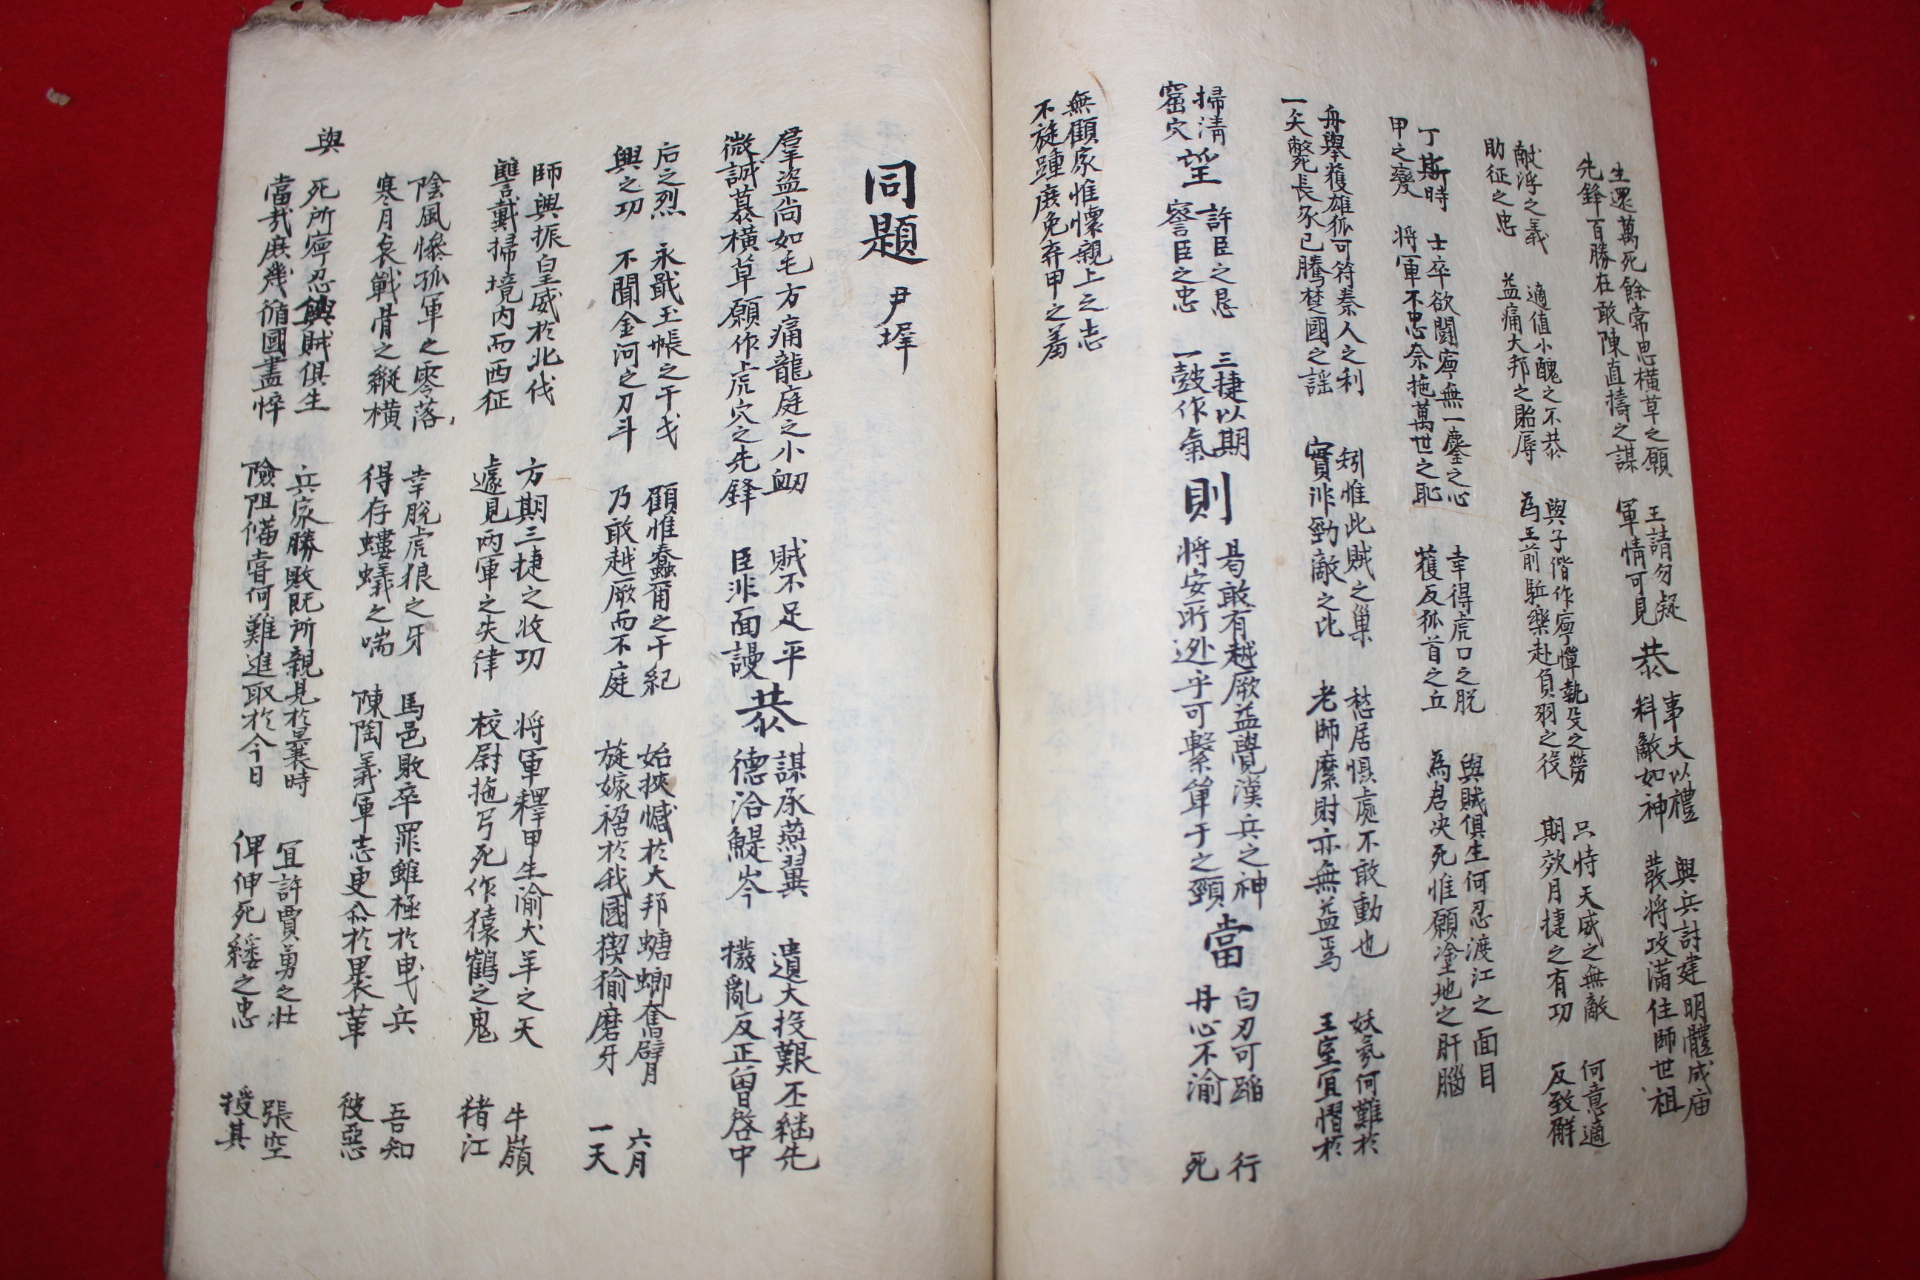 生還萬死餘常思橫草之願
先鋒百勝在敢陳直擣之謀
王請勿疑
軍情可見
恭
事大以禮
料敵如神
與兵討建明體成庙
將攻滿住師世祖
献浮之義
助征之忠
適值小醜之不恭
益痛大邦之貽辱
與子偕作寧憚執殳之勞
為王前駈樂赴負羽之役
只恃天威之無敵
期效月捷之有功
何意適
反致解
丁斯時
甲之變
士卒欲鬪寧無一鏖之心
将軍不忠奈拖萬世之恥
幸得虎口之脫
獲反狐首之丘
與賊俱生何忍渡江之面目
為君决死惟願塗地之肝腦
舟舉獲雄狐可符秦人之利
一矢斃長豕已騰楚國之謡
矧惟此賊之巢
實非勁敵之比
愁居惧處不敢動也
老師糜財亦無益焉
妖氛何難於
王室宜慴於
掃清
窟穴
望
許臣之懇
察臣之忠
三捷以期
一鼓作氣
則
曷敢有越厥益覺漢兵之神
将安所迯乎可繫單于之頸
當
白刃可蹈
丹心不渝
行
死
無顧家惟懷親上之志
不旋踵庶免弃甲之羞
同題 尹墀
羣盗尚如毛方痛龍庭之小衂
微誠慕橫草願作虎穴之先鋒
賊不足平
臣非面謾
恭
謀承燕翼
德洽鯷岑
遺大投艱丕継先
撥亂反正曾啓中
后之烈
興之功
永戢玉帳之干戈
不聞金河之刀斗
顧惟蠢爾之干紀
乃敢越厥而不庭
始挾憾於大邦螗螂奮臂
旋嫁禍於我國猰㺄磨牙
六月
一天
師興振皇威於北伐
讐戴掃境內而西征
方期三捷之收功
遽見兩軍之失律
将軍釋甲生渝犬羊之天
校尉拖弓死作猿鶴之鬼
牛嶺
猪江
陰風慘孤軍之零落
寒月哀戰骨之縱橫
幸脫虎狼之牙
得存螻蟻之喘
馬邑敗卒罪雖極於曳兵
陳陶義軍志更公於裹革
吾知
彼惡
與
死所寧忍與賊俱生
當哉庶幾循國盡悴
兵家勝敗既所親見於曩時
險阻備嘗何難進取於今日
宜許賈勇之壯
俾伸死綏之忠
張空
授其